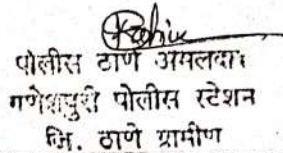 पोलीस ठाणे अमलदार
गणेशपुरी पोलीस स्टेशन
जि. ठाणे ग्रामीण